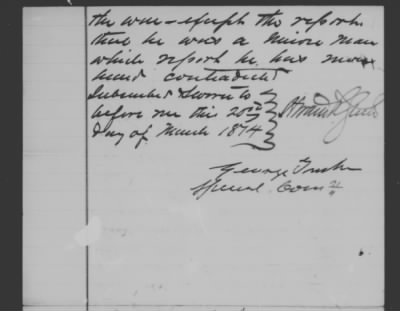 the war - except the report
that he was a Union man
which report he has never
heard contradicted
Subscribed & Sworn to
before me this 20th
day of March 1874
George Tucker
Special Comr